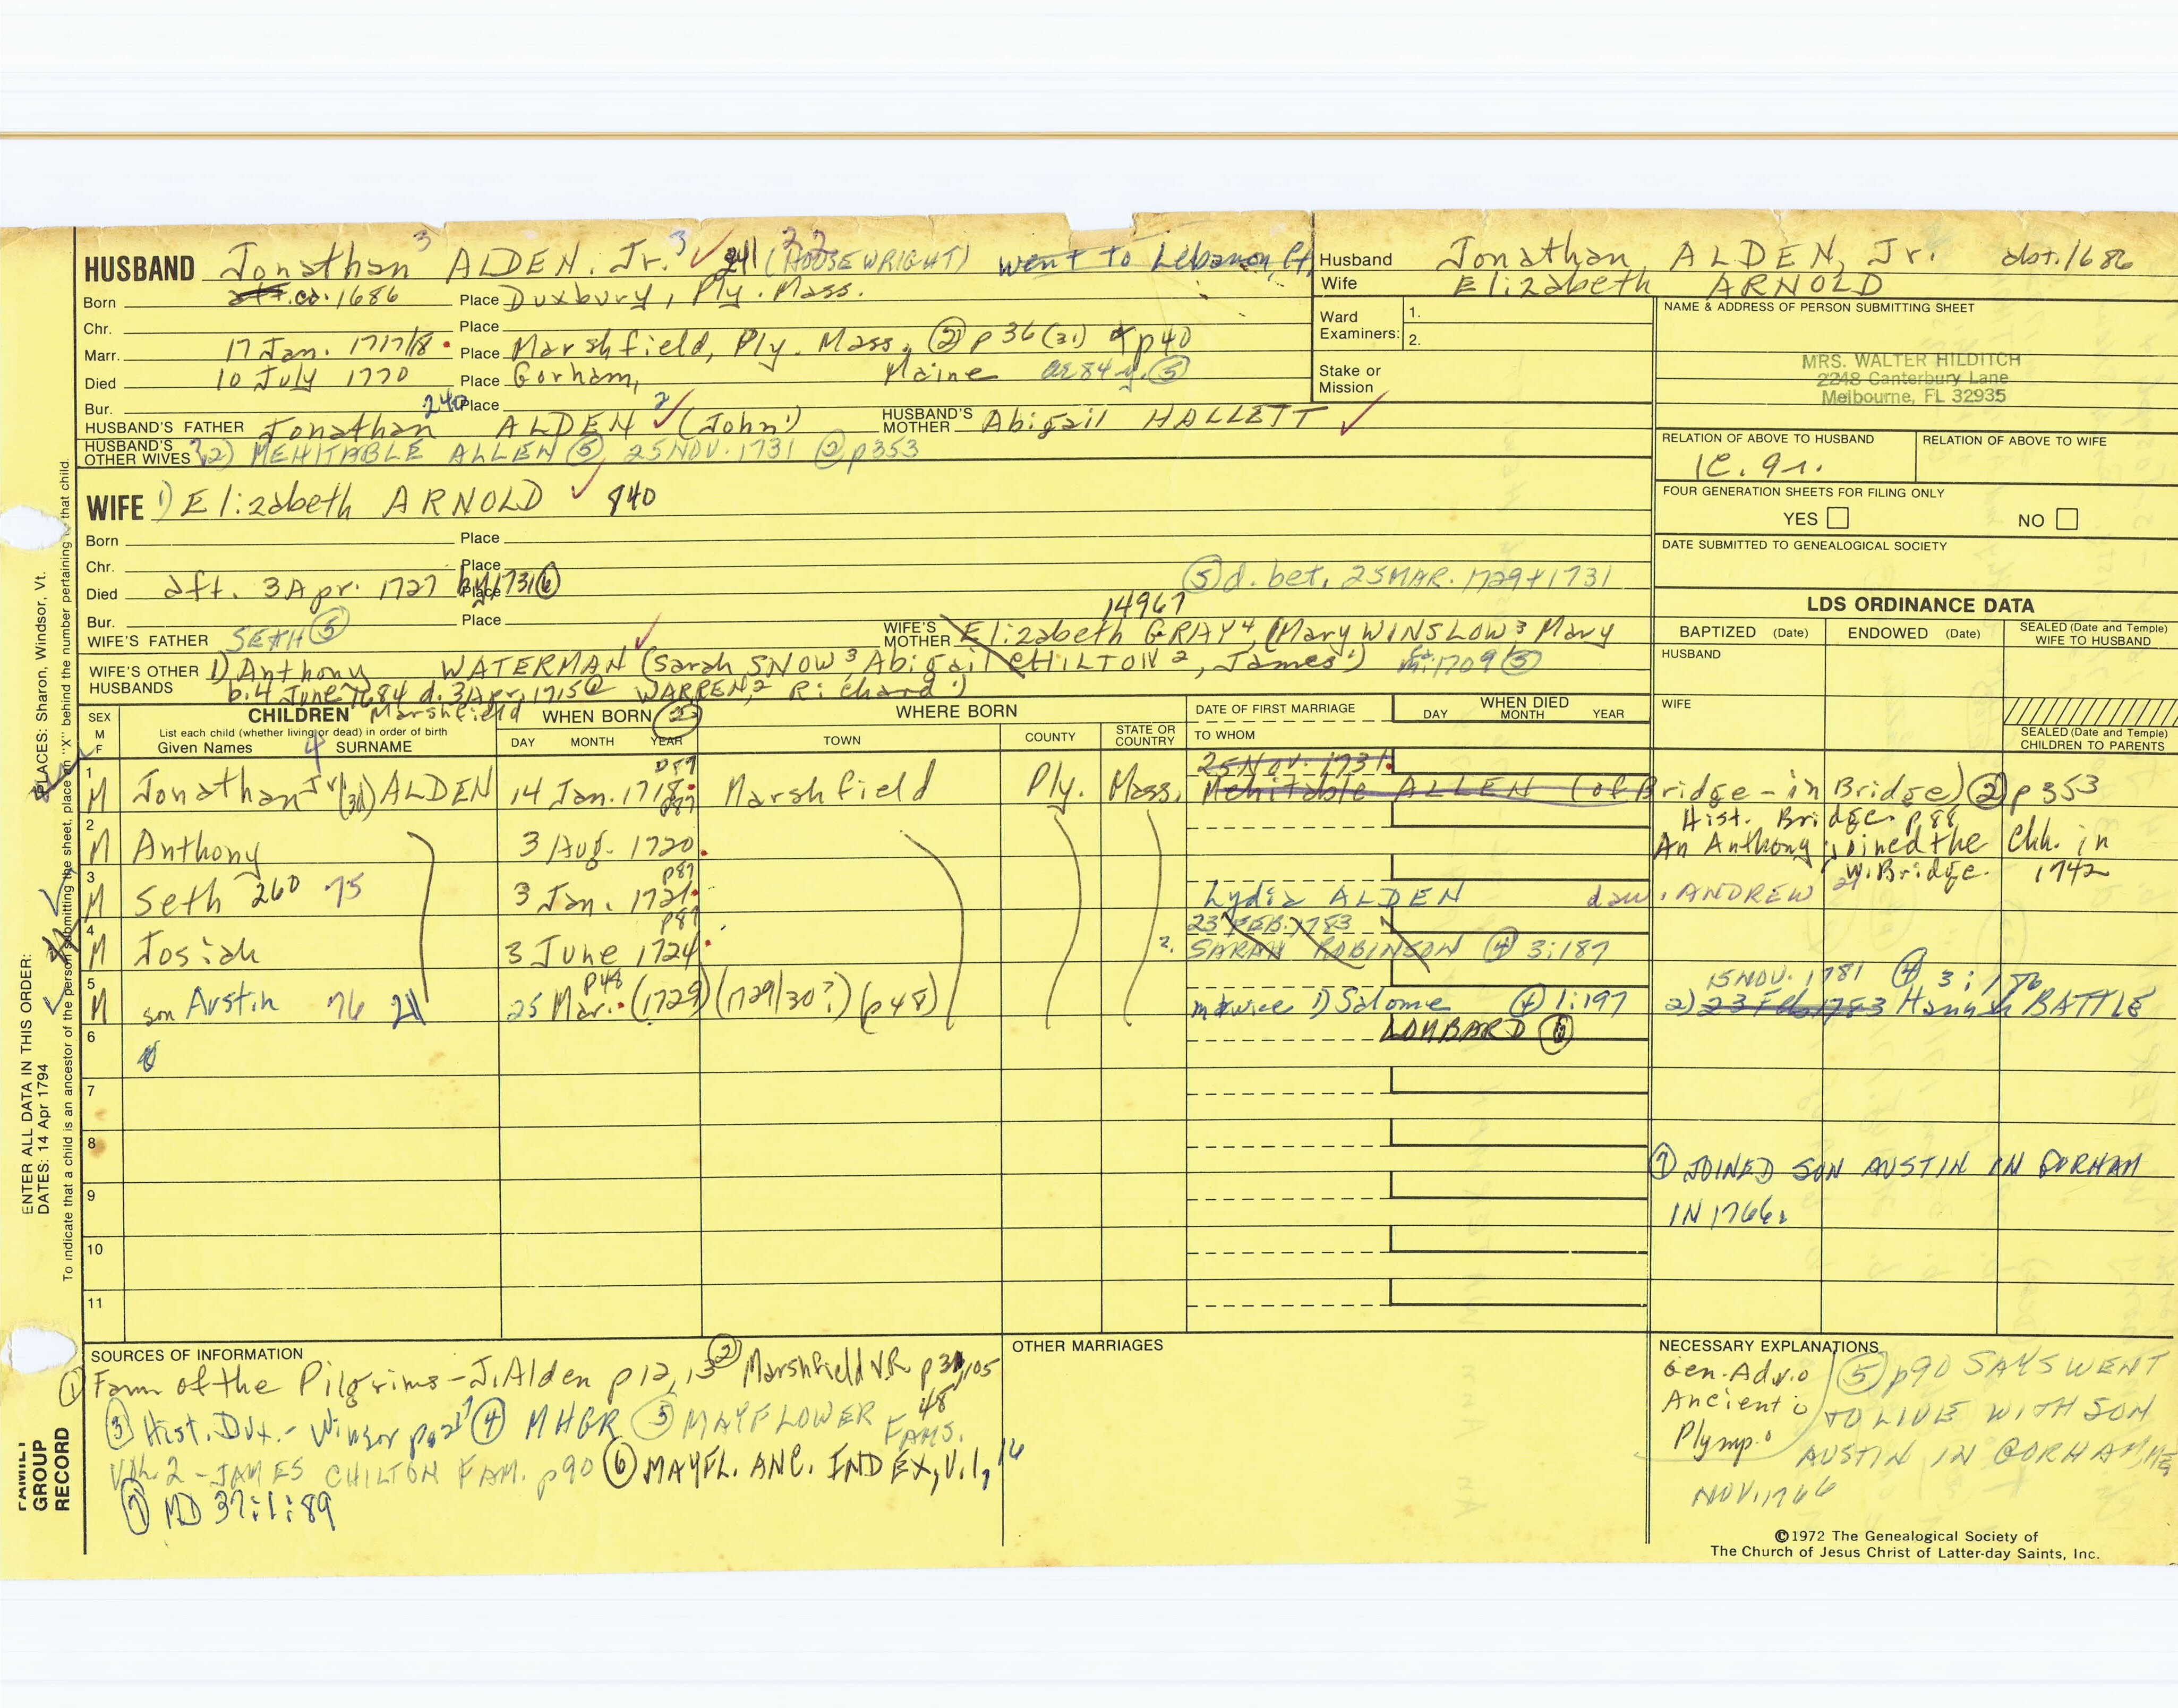 HUSBAND Jonathan 3 ALDEN, Jr. 3 241 22 (HOUSEWRIGHT) went to Lebanon, Ct.
Born ca. 1686 Place Duxbury, Ply. Mass.
Chr. Place
Marr. 17 Jan. 1717/8 Place Marshfield, Ply. Mass, ② p 36 (31) p40
Died 10 July 1770 Place Gorham, Maine ae 84 y. ⑤
Bur. Place
HUSBAND'S FATHER 240 Jonathan ALDEN 2 (John 1) HUSBAND'S MOTHER Abigail HALLETT
HUSBAND'S OTHER WIVES 2) MEHITABLE ALLEN ⑤ 25 NOV. 1731 ② p353
WIFE 1) Elizabeth ARNOLD 840
Born Place
Chr. Place
Died aft. 3 Apr. 1727 by 1731 ⑥ Place ⑤ d. bet. 25 MAR. 1729 + 1731
Bur. Place
14967
WIFE'S FATHER SETH ⑤ WIFE'S MOTHER Elizabeth GRAY 4, (Mary WINSLOW 3 Mary
WIFE'S OTHER HUSBANDS 1) Anthony WATERMAN (Sarah SNOW 3 Abigail CHILTON 2, James 1) m. 1709 ⑤
b. 4 June 1684 d. 3 Apr. 1715 ② WARREN, 2 Richard 1)
Husband Jonathan ALDEN, Jr. abt. 1686
Wife Elizabeth ARNOLD
Ward Examiners: 1.
2.
Stake or Mission
NAME & ADDRESS OF PERSON SUBMITTING SHEET
MRS. WALTER HILDITCH
2248 Canterbury Lane
Melbourne, FL 32935
RELATION OF ABOVE TO HUSBAND RELATION OF ABOVE TO WIFE
FOUR GENERATION SHEETS FOR FILING ONLY
YES NO
DATE SUBMITTED TO GENEALOGICAL SOCIETY
LDS ORDINANCE DATA
BAPTIZED (Date) ENDOWED (Date) SEALED (Date and Temple) WIFE TO HUSBAND
HUSBAND
WIFE
SEALED (Date and Temple) CHILDREN TO PARENTS
SEX M F CHILDREN Marshfield WHEN BORN ② WHERE BORN DATE OF FIRST MARRIAGE WHEN DIED
List each child (whether living or dead) in order of birth
Given Names 4 SURNAME DAY MONTH YEAR TOWN COUNTY STATE OR COUNTRY TO WHOM DAY MONTH YEAR
25 Nov. 1731
1 M Jonathan Jr (3d) ALDEN 14 Jan. 1718 Marshfield Ply. Mass. Mehitable ALLEN (of Bridge - in Bridge) ② p 353
Hist. Bridge p 88
2 M Anthony 3 Aug. 1720 An Anthony joined the Chh. in W. Bridge. 1742
3 M Seth 260 75 3 Jan. 1721 p87 Lydia ALDEN dau. ANDREW
4 M Josiah 3 June 1724 p87 23 FEB. 1783
2. SARAH ROBINSON ④ 3:187
15 NOV. 1781 ④ 3:176
5 M son Austin 76 25 Mar. (1729) (1729/30?) (p48) p48 m twice 1) Salome ④ 1:197 2) 23 Feb. 1783 Hannah BATTLE
LOMBARD ⑥
6
7
8
⑦ JOINED SON AUSTIN IN GORHAM
IN 1766.
9
10
11
SOURCES OF INFORMATION
① Fam of the Pilgrims - J. Alden p 12, 13 ② Marshfield V.R. p 31, 105
48
③ Hist. Dux. - Winsor ④ MHGR ⑤ MAYFLOWER FAMS.
VOL 2 - JAMES CHILTON FAM. p90 ⑥ MAYFL. ANC. INDEX, V.1, 16
⑦ MD 37:1:89
OTHER MARRIAGES
NECESSARY EXPLANATIONS
Gen. Adv.
Ancient
Plymp.
⑤ p90 SAYS WENT
TO LIVE WITH SON
AUSTIN IN GORHAM, ME
NOV. 1766
©1972 The Genealogical Society of
The Church of Jesus Christ of Latter-day Saints, Inc.
ENTER ALL DATA IN THIS ORDER:
DATES: 14 Apr 1794
PLACES: Sharon, Windsor, Vt.
To indicate that a child is an ancestor of the person submitting the sheet, place an "X" behind the number pertaining to that child.
FAMILY GROUP RECORD